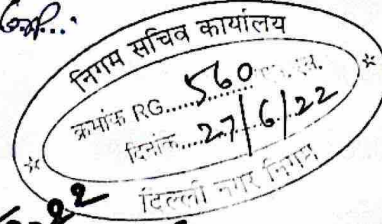 निगम सचिव कार्यालय
क्रमांक RG.....560
दिनांक....27/6/22
दिल्ली नगर निगम